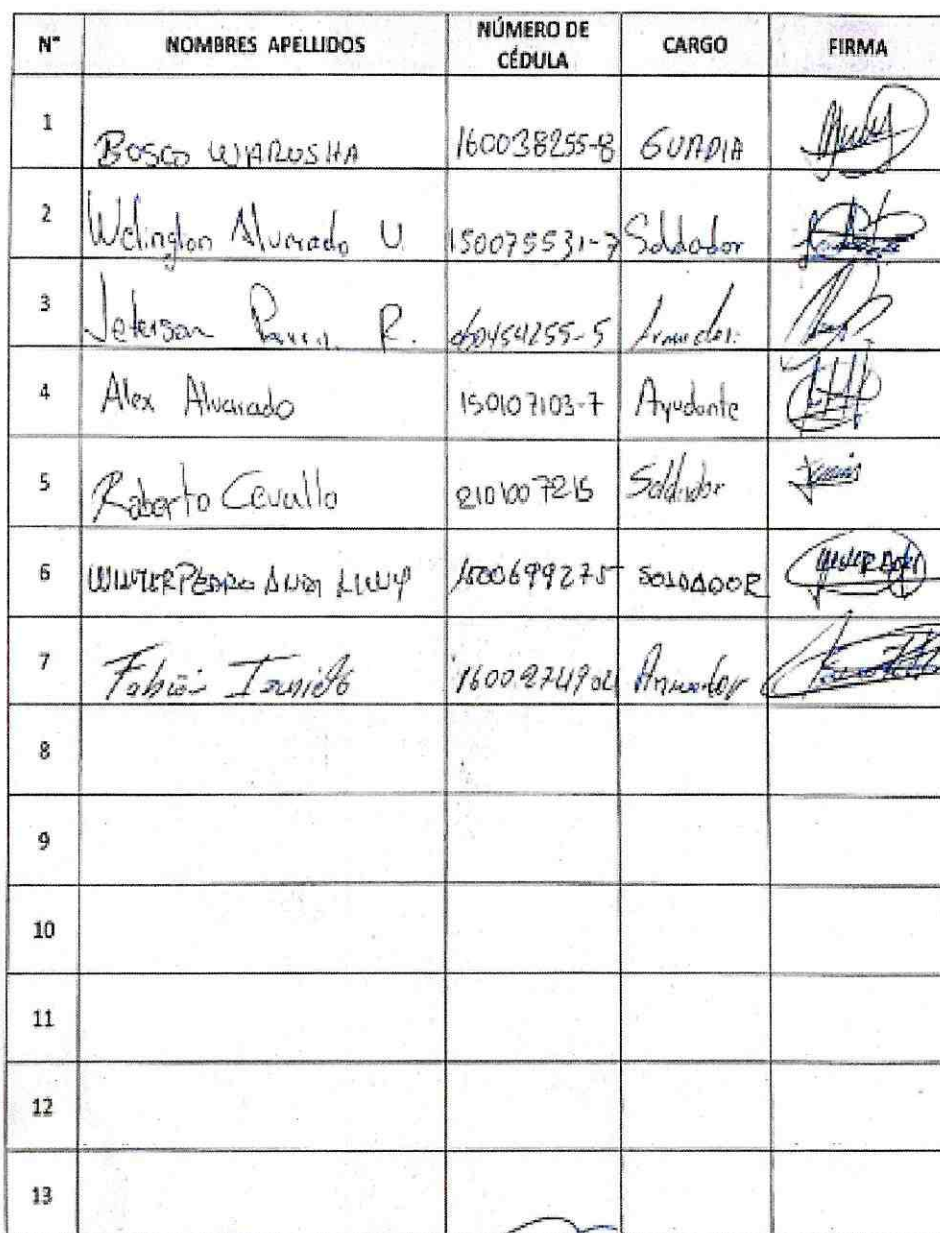 N° NOMBRES APELLIDOS NÚMERO DE CÉDULA CARGO FIRMA
1 BOSCO WIARUSHA 160038255-8 GUARDIA
2 Welington Alvarado U. 150075531-7 Soldador
3 Jeferson R. 060454255-5
4 Alex Alvarado 150107103-7 Ayudante
5 Roberto Cevallo 2101007215 Soldador
6 1500699275 SOLDADOR
7 Fabián Armador
8
9
10
11
12
13